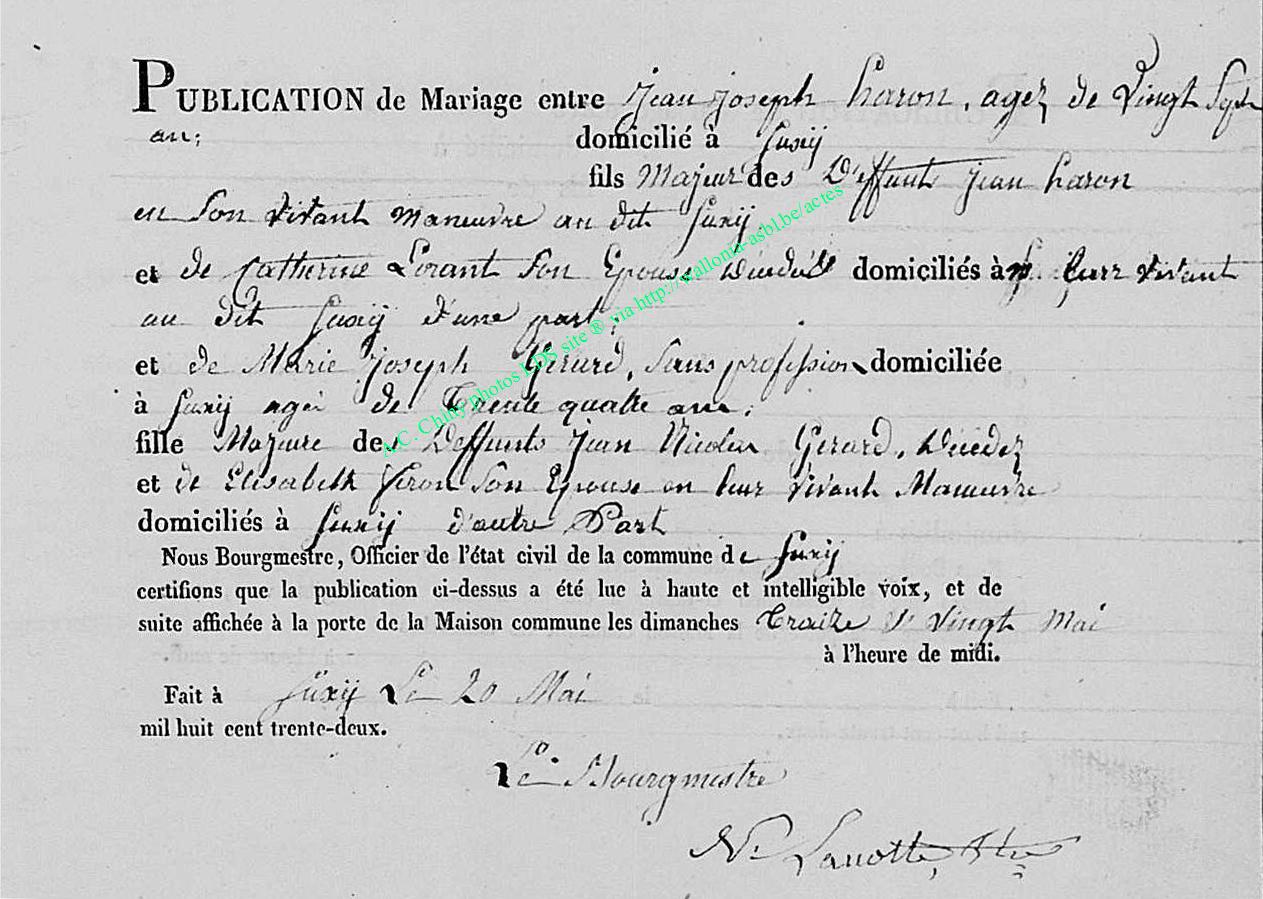 PUBLICATION de Mariage entre Jean Joseph haron, agez de Vingt Sept
an;
domicilié à Suxÿ
fils Majeur des Deffunts Jean haron
en Son vivant Maneuvre au dit Suxÿ
et de Catherine Lorant Son Epouse Décédés domiciliés à leurr vivant
au dit Suxÿ d'une part;
et de Marie Joseph Gérard, Sans profession domiciliée
à Suxÿ agée de Trente quatre ans;
fille Majeure des Deffunts Jean Nicolas Gérard, Décédez
et de Elisabeth Son Epouse en leur vivant Maneuvre
domiciliés à Suxÿ d'autre Part
Nous Bourgmestre, Officier de l'état civil de la commune de Suxÿ
certifions que la publication ci-dessus a été lue à haute et intelligible voix, et de
suite affichée à la porte de la Maison commune les dimanches Traize & Vingt Mai
à l'heure de midi.
Fait à Suxÿ Le 20 Mai
mil huit cent trente-deux.
Le Bourgmestre
N. Lanotte,
A.C. Chiny photos LDS site ® via http://wallonia-asbl.be/actes